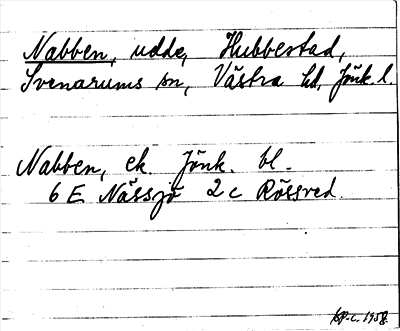 Nabben, udde, Hubbestad,
Svenarums sn, Västra hd, Jönk. l.
Nabben, ek. Jönk. bl.
6 E Nässjö 2 c Rössved.
1958.